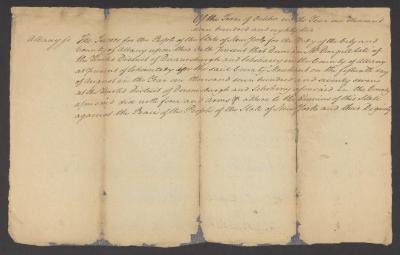 Of the Term of October in the Year one thousand
seven hundred and eighty
Albany ss The Jurors for the People of the State of New York for the Body of the City and
County of Albany upon their Oath present that Duncan McDougall late of
the United District of Duanesburgh and Schohary in the County of Albany
at present of in the said County on the fifteenth day
of August in the Year one thousand seven hundred and seventy seven
at the United District of Duanesburgh and Schohary aforesaid in the County
aforesaid did with force and arms &c adhere to the Enemies of this State
against the Peace of the People of the State of New York and their Dignity